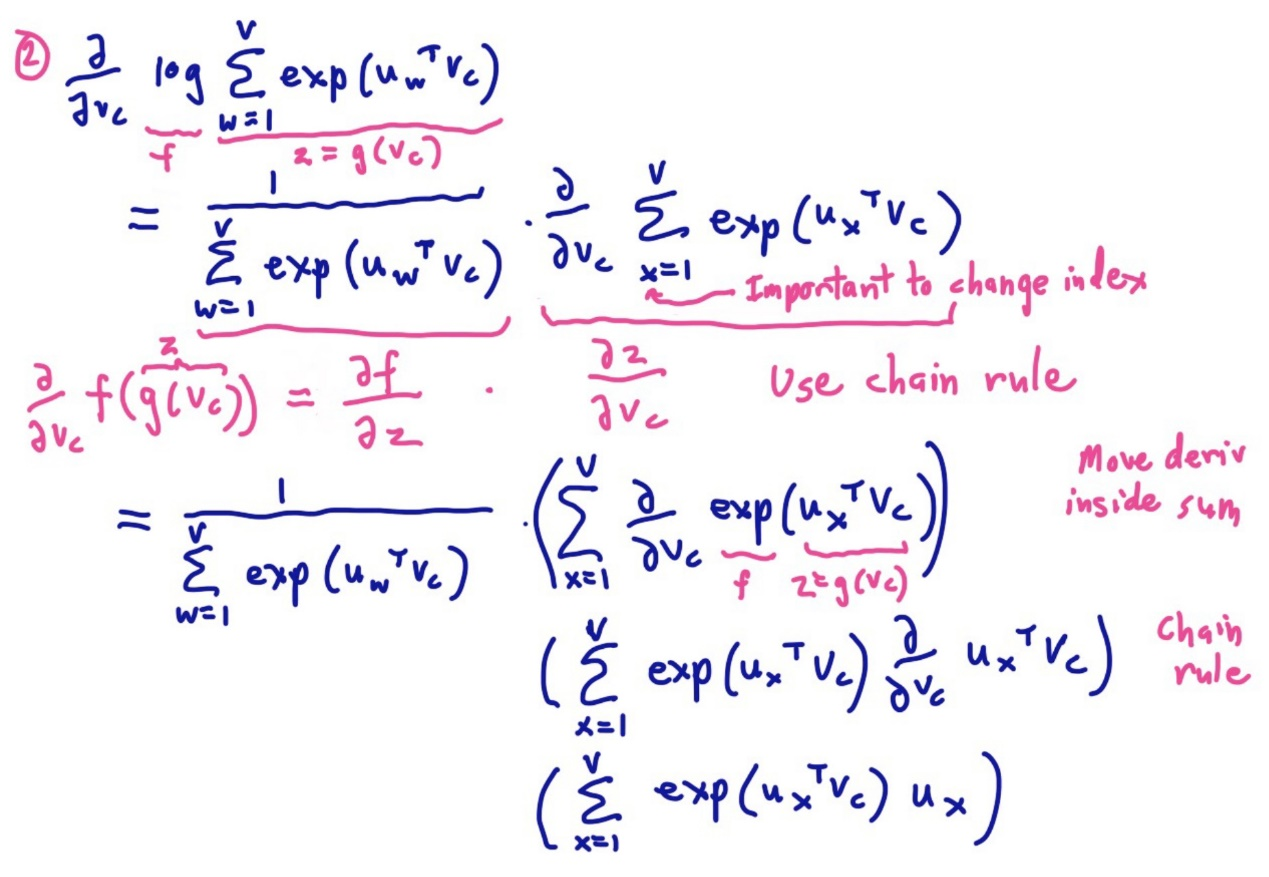 ② ∂/∂v_c log Σ_{w=1}^{V} exp(u_w^T v_c)
f z = g(v_c)
= 1 / Σ_{w=1}^{V} exp(u_w^T v_c) · ∂/∂v_c Σ_{x=1}^{V} exp(u_x^T v_c)
Important to change index
z
∂/∂v_c f(g(v_c)) = ∂f/∂z · ∂z/∂v_c Use chain rule
= 1 / Σ_{w=1}^{V} exp(u_w^T v_c) · (Σ_{x=1}^{V} ∂/∂v_c exp(u_x^T v_c)) Move deriv
inside sum
f z=g(v_c)
(Σ_{x=1}^{V} exp(u_x^T v_c) ∂/∂v_c u_x^T v_c) Chain
rule
(Σ_{x=1}^{V} exp(u_x^T v_c) u_x)